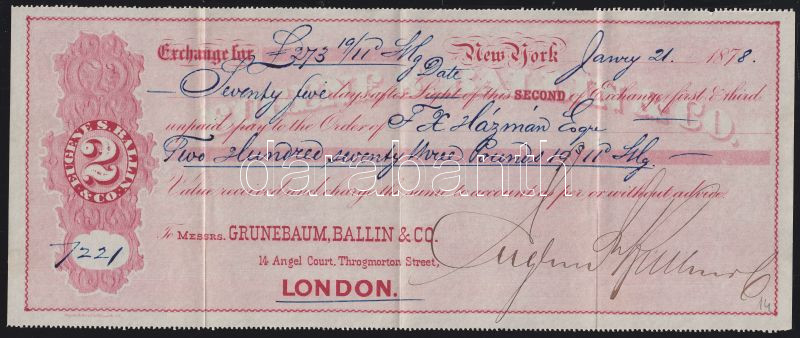 Exchange for £273 19/11 Stg New York Janry 21 1878.
Date
Seventy five days after Sight of this SECOND of Exchange first & third
unpaid pay to the Order of F X Házmán Esqre
Two Hundred seventy three Pounds 19s 11d Stg.
Value received and charge the same to account as per or without advice.
EUGENE S. BALLIN & CO.
2
To MESSRS. GRUNEBAUM, BALLIN & CO.
14 Angel Court, Throgmorton Street,
LONDON.
7221
Eugene S Ballin & Co
14
darabanth.com